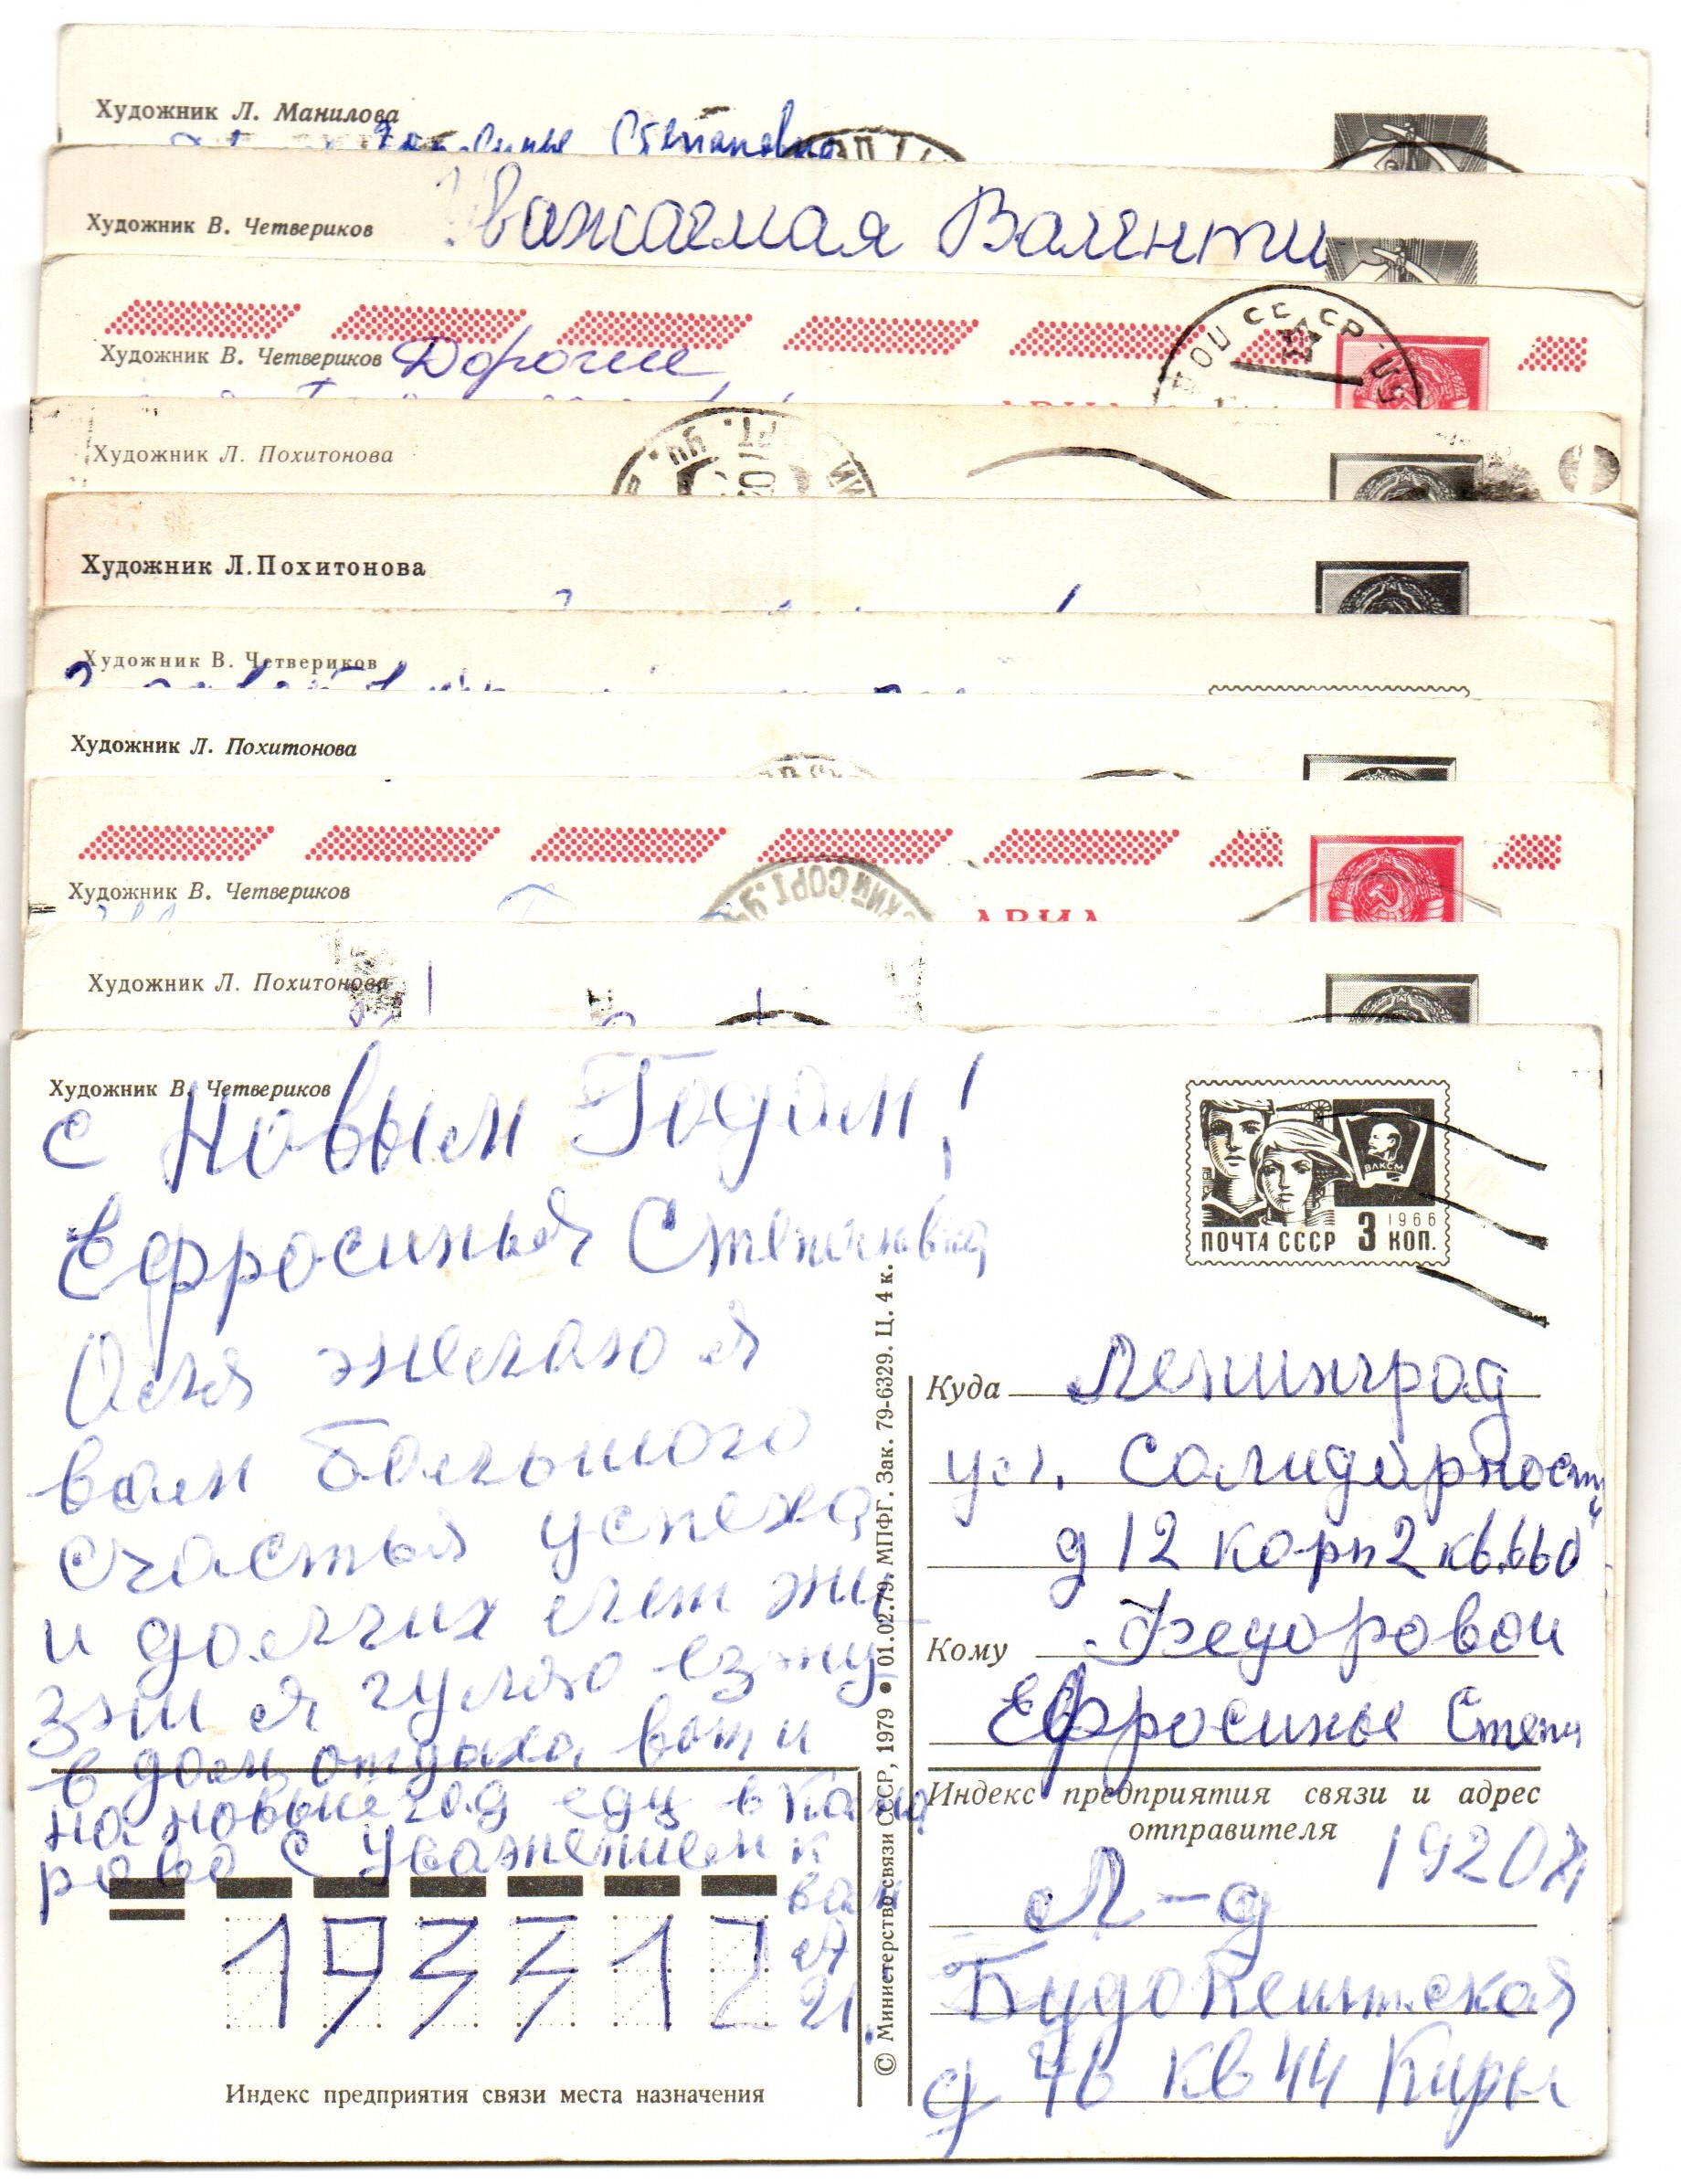 Художник Л. Манилова
Степановна
Художник В. Четвериков
Уважаемая Валенти
Художник В. Четвериков
Дорогие
СССР
Художник Л. Похитонова
Художник Л. Похитонова
Художник В. Четвериков
Художник Л. Похитонова
Художник В. Четвериков
АВИА
Художник Л. Похитонова
Художник В. Четвериков
с Новым Годом!
Ефросинья Степановна
желаю я
вам большого
счастья успеха
и долгих лет жи
зни я гуляю езжу
в дом отдыха, вот и
на новые год еду в Кома
рово с уважением к
вам
ВЛКСМ
1966
ПОЧТА СССР 3 КОП.
Куда Ленинград
ул. Солидарности
д 12 корп 2 кв.660
Кому Федоровой
Ефросинье Степа
Индекс предприятия связи и адрес
отправителя
192071
Л-д
Будопештская
д 46 кв 44 Киры
193312
Индекс предприятия связи места назначения
© Министерство связи СССР, 1979 • 01.02.79. МПФГ. Зак. 79-6329. Ц. 4 к.